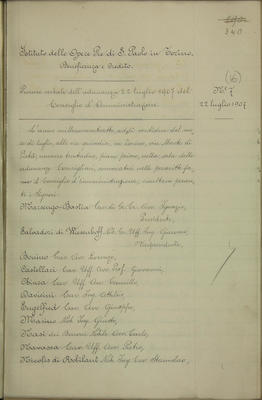 340
Istituto delle Opere Pie di S. Paolo in Torino.
Beneficenza e Credito.
Processo verbale dell'adunanza 22 luglio 1907 del
Consiglio d'Amministrazione.
(16)
N.° 7
22 luglio 1907
L'anno millenovecentosette, addì ventidue del me-
se di luglio, alle ore quindici, in Torino, via Monte di
Pietà, numero trentadue, piano primo, nella sala delle
adunanze Consigliari, convocatosi nelle prescritte for-
me il Consiglio d'Amministrazione, risultano presen-
ti i Signori:
Marsengo-Bastia Cav. Ignazio,
Presidente,
Salvadori di Wiesenhoff Uff. Ing. Giacomo
Vicepresidente,
Bonino Cav. Avv. Lorenzo,
Castellari Cav. Uff. Avv. Prof. Giovanni,
Cav. Uff. Avv. Camillo,
Davicini Cav. Ing. Attilio,
Engelfred Cav. Avv. Giuseppe,
Masino Nob. Ing.
Nasi dei Baroni Nob. Avv. Carlo,
Navassa Cav. Uff. Avv. Pietro,
Nicolis di Robilant Nob. Ing. Cav. Stanislao,